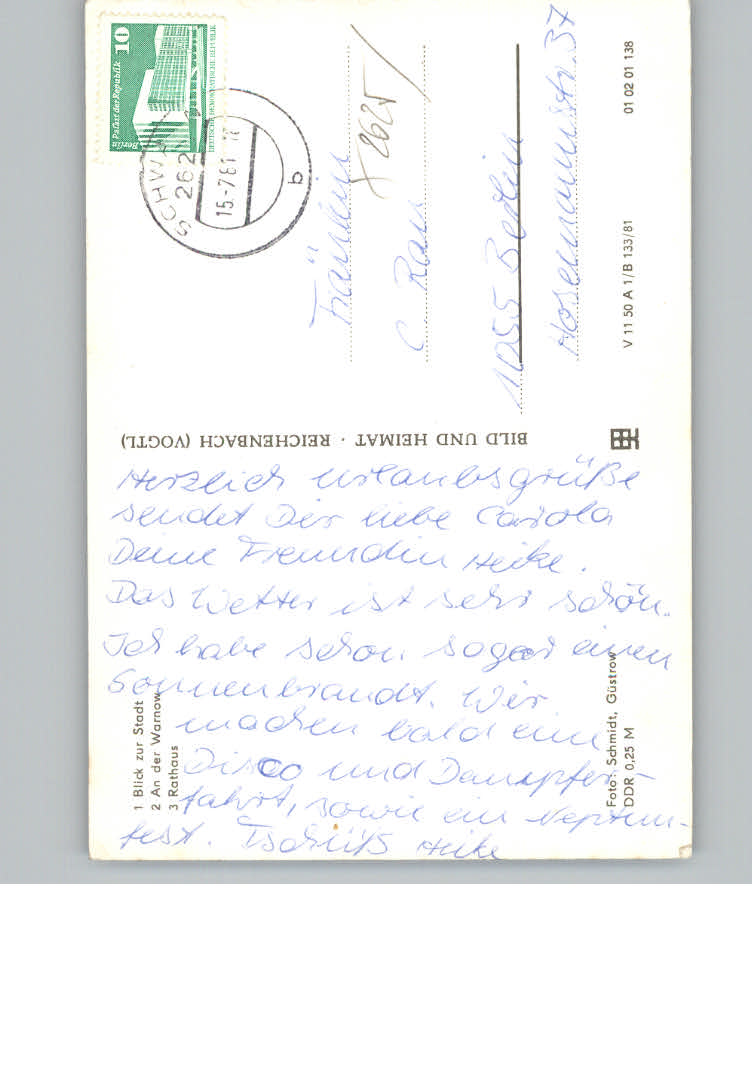 1 Blick zur Stadt
2 An der Warnow
3 Rathaus
Herzlich urlaubsgrüße
sendet Dir liebe Carola
Deine Freundin Heike.
Das Wetter ist sehr schön.
Ich habe schon sogar einen
Sonnenbrandt. Wir
machen bald eine
Disco und Dampfer-
fahrt, sowie ein Neptun-
fest. Tschüß Heike
Foto: Schmidt, Güstrow
DDR 0,25 M
BILD UND HEIMAT · REICHENBACH (VOGTL)
V 11 50 A 1/B 133/81
01 02 01 138
10
Berlin Palast der Republik
DEUTSCHE DEMOKRATISCHE REPUBLIK
262
15.-7.81
b
2625
Fräulein
C.
1055 Berlin
Hosemannstr. 37